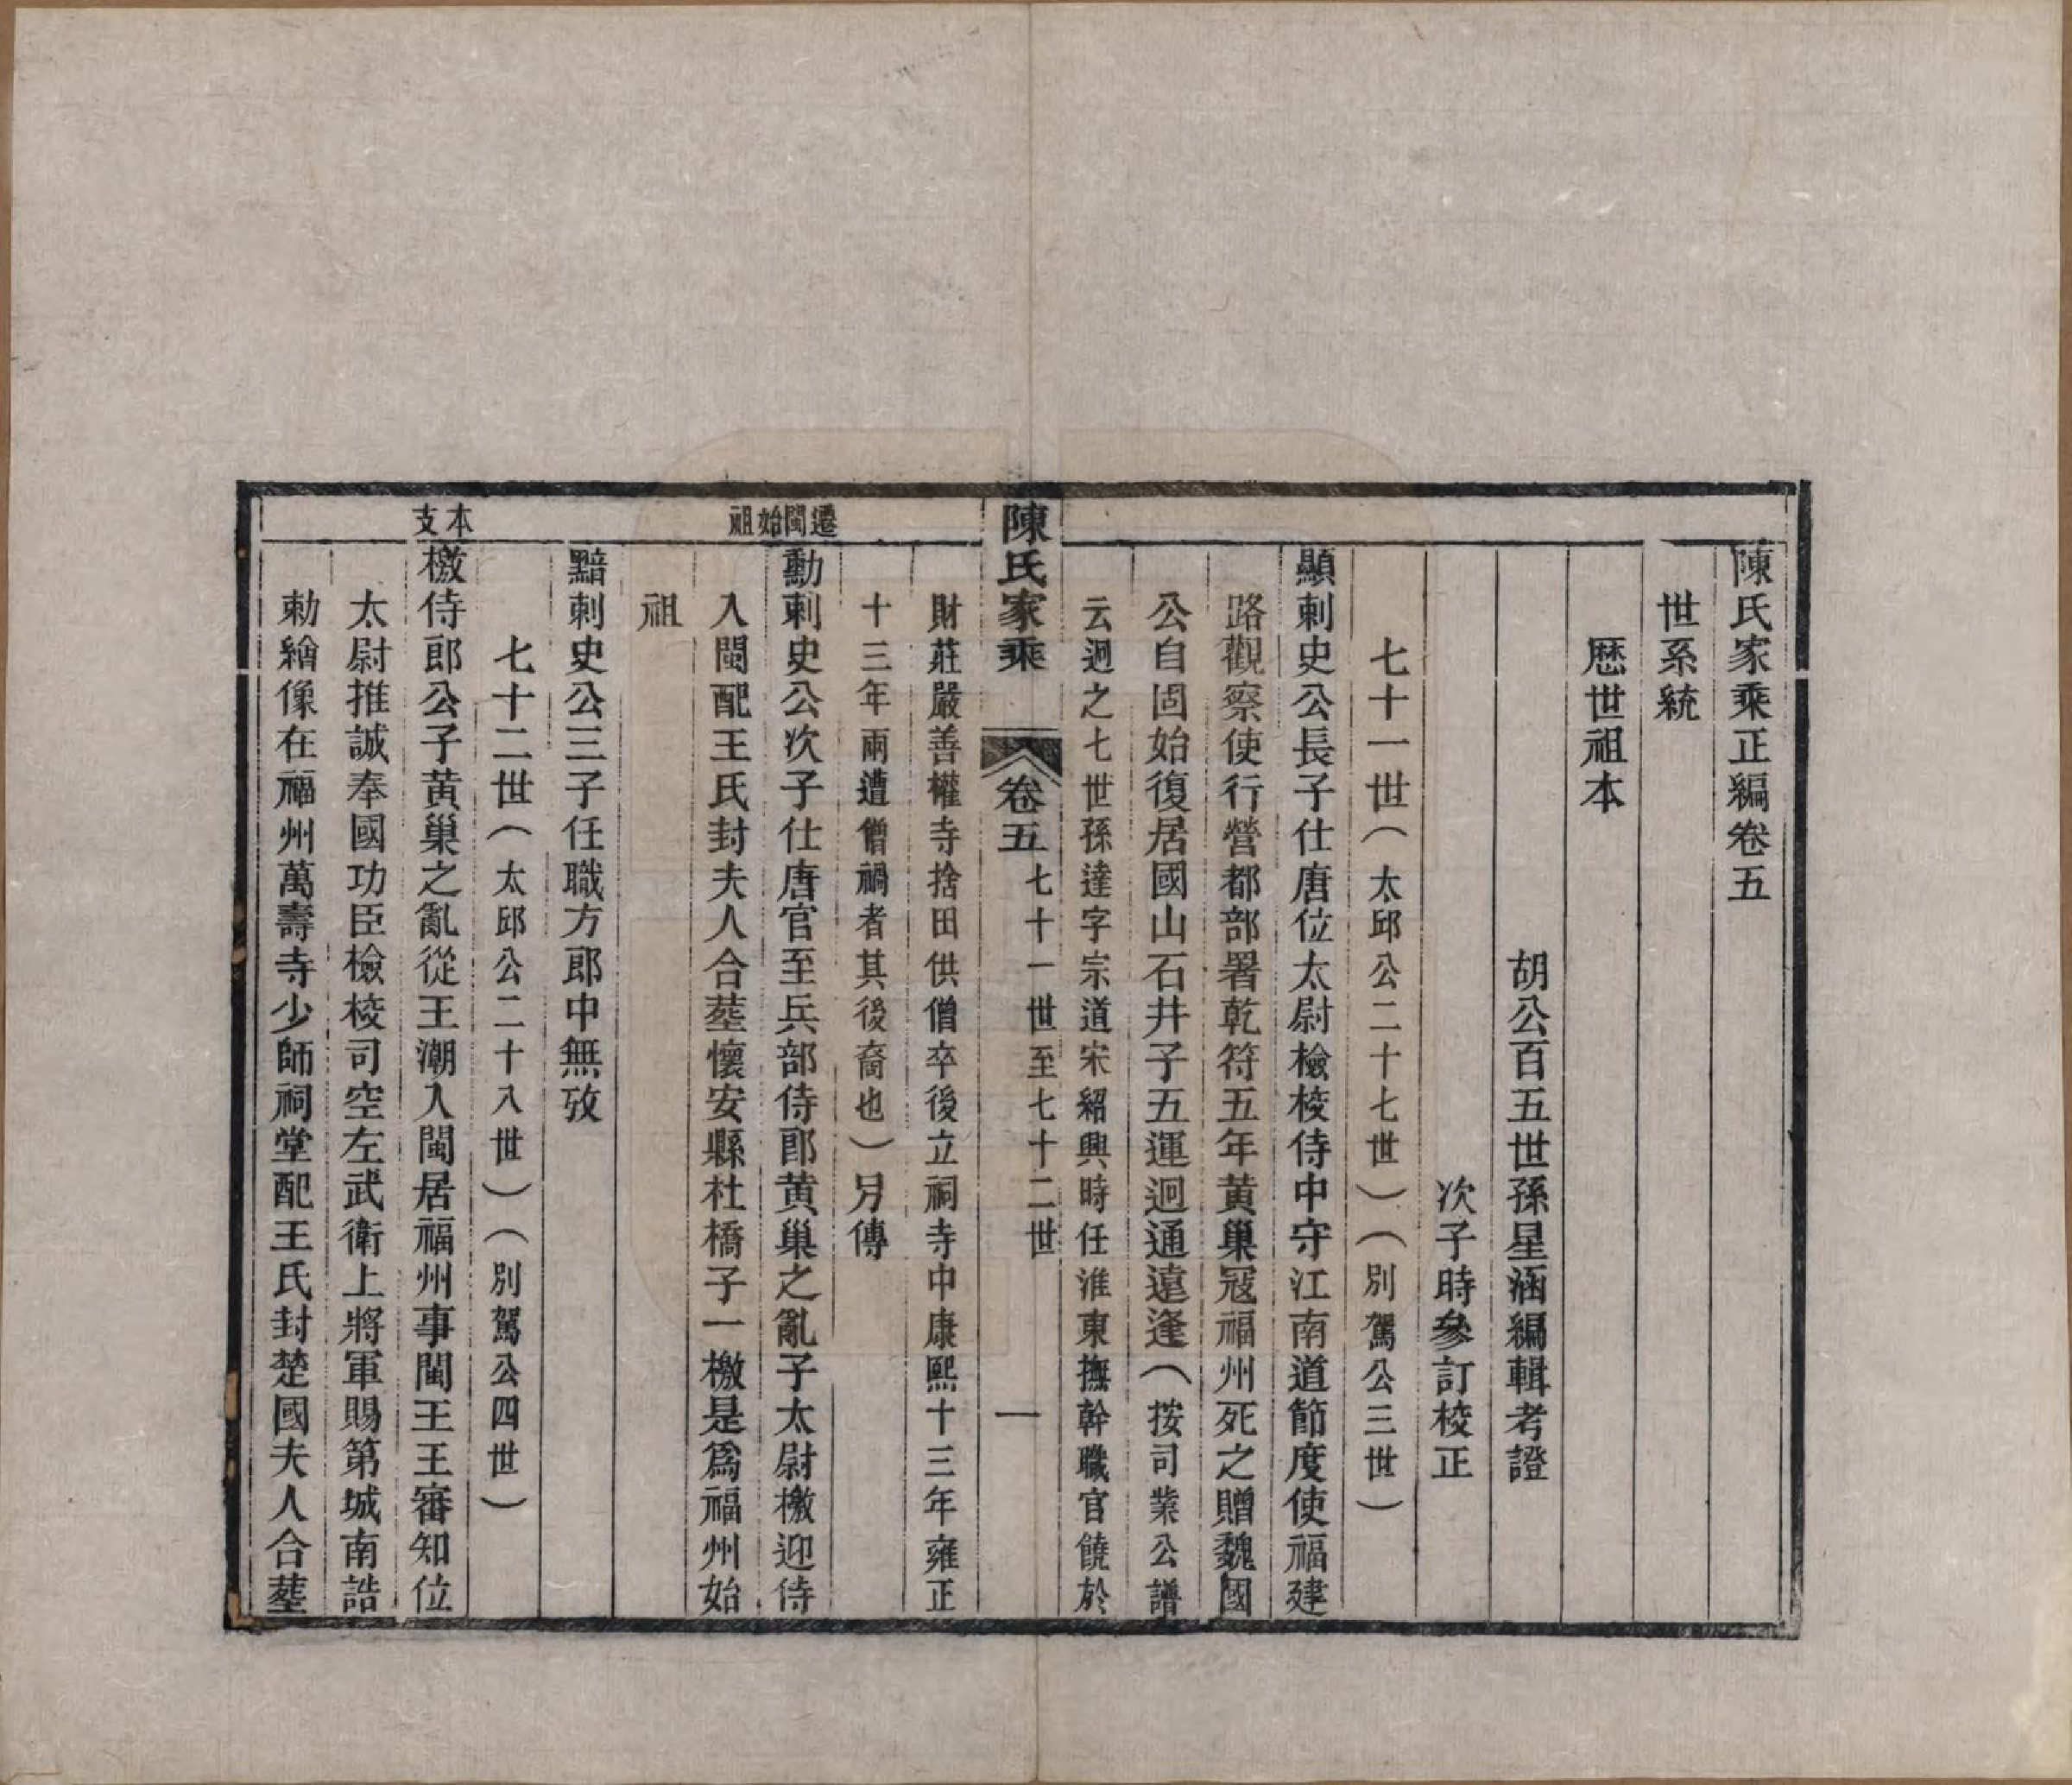 陳氏家乘正編卷五
世系統
厯世祖本
胡公百五世孫星涵編輯考證
次子時參訂校正
七十一世（太邱公二十七世）（別駕公三世）
顯刺史公長子仕唐位太尉檢校侍中守江南道節度使福建
路觀察使行營都部署乾符五年黃巢冦福州死之贈魏國
公自固始復居國山石井子五運迥通遠逢（按司業公譜
云迥之七世孫達字宗道宋紹興時任淮東撫幹職官饒於
陳氏家乘
卷五
七十一世至七十二世
一
財莊嚴善權寺捨田供僧卒後立祠寺中康熙十三年雍正
十三年兩遭僧禍者其後裔也）另傳
遷閩始祖
勳刺史公次子仕唐官至兵部侍郎黃巢之亂子太尉檄迎侍
入閩配王氏封夫人合塟懷安縣杜橋子一檄是爲福州始
祖
黯刺史公三子任職方郎中無攷
七十二世（太邱公二十八世）（別駕公四世）
本支
檄侍郎公子黃巢之亂從王潮入閩居福州事閩王王審知位
太尉推誠奉國功臣檢校司空左武衛上將軍賜第城南誥
勅繪像在福州萬壽寺少師祠堂配王氏封楚國夫人合塟